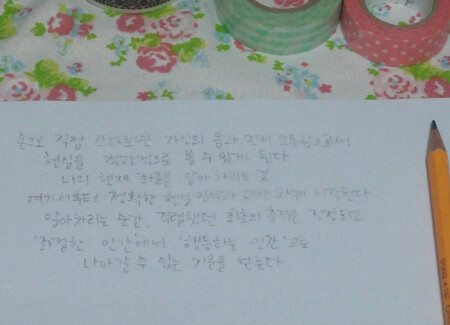 손으로 직접 쓰다보면 자신의 몸과 먼저 소통함으로써
현실을 객관적으로 볼 수 있게 된다
나의 현재 좌표를 알아차리는 것
여기서부터 정확한 현실 인식과 대안 모색이 시작된다
알아차리는 순간, 직면했던 최초의 충격은 진정되고
'좌절한 인간'에서 '행동하는 인간'으로
나아갈 수 있는 기운을 얻는다